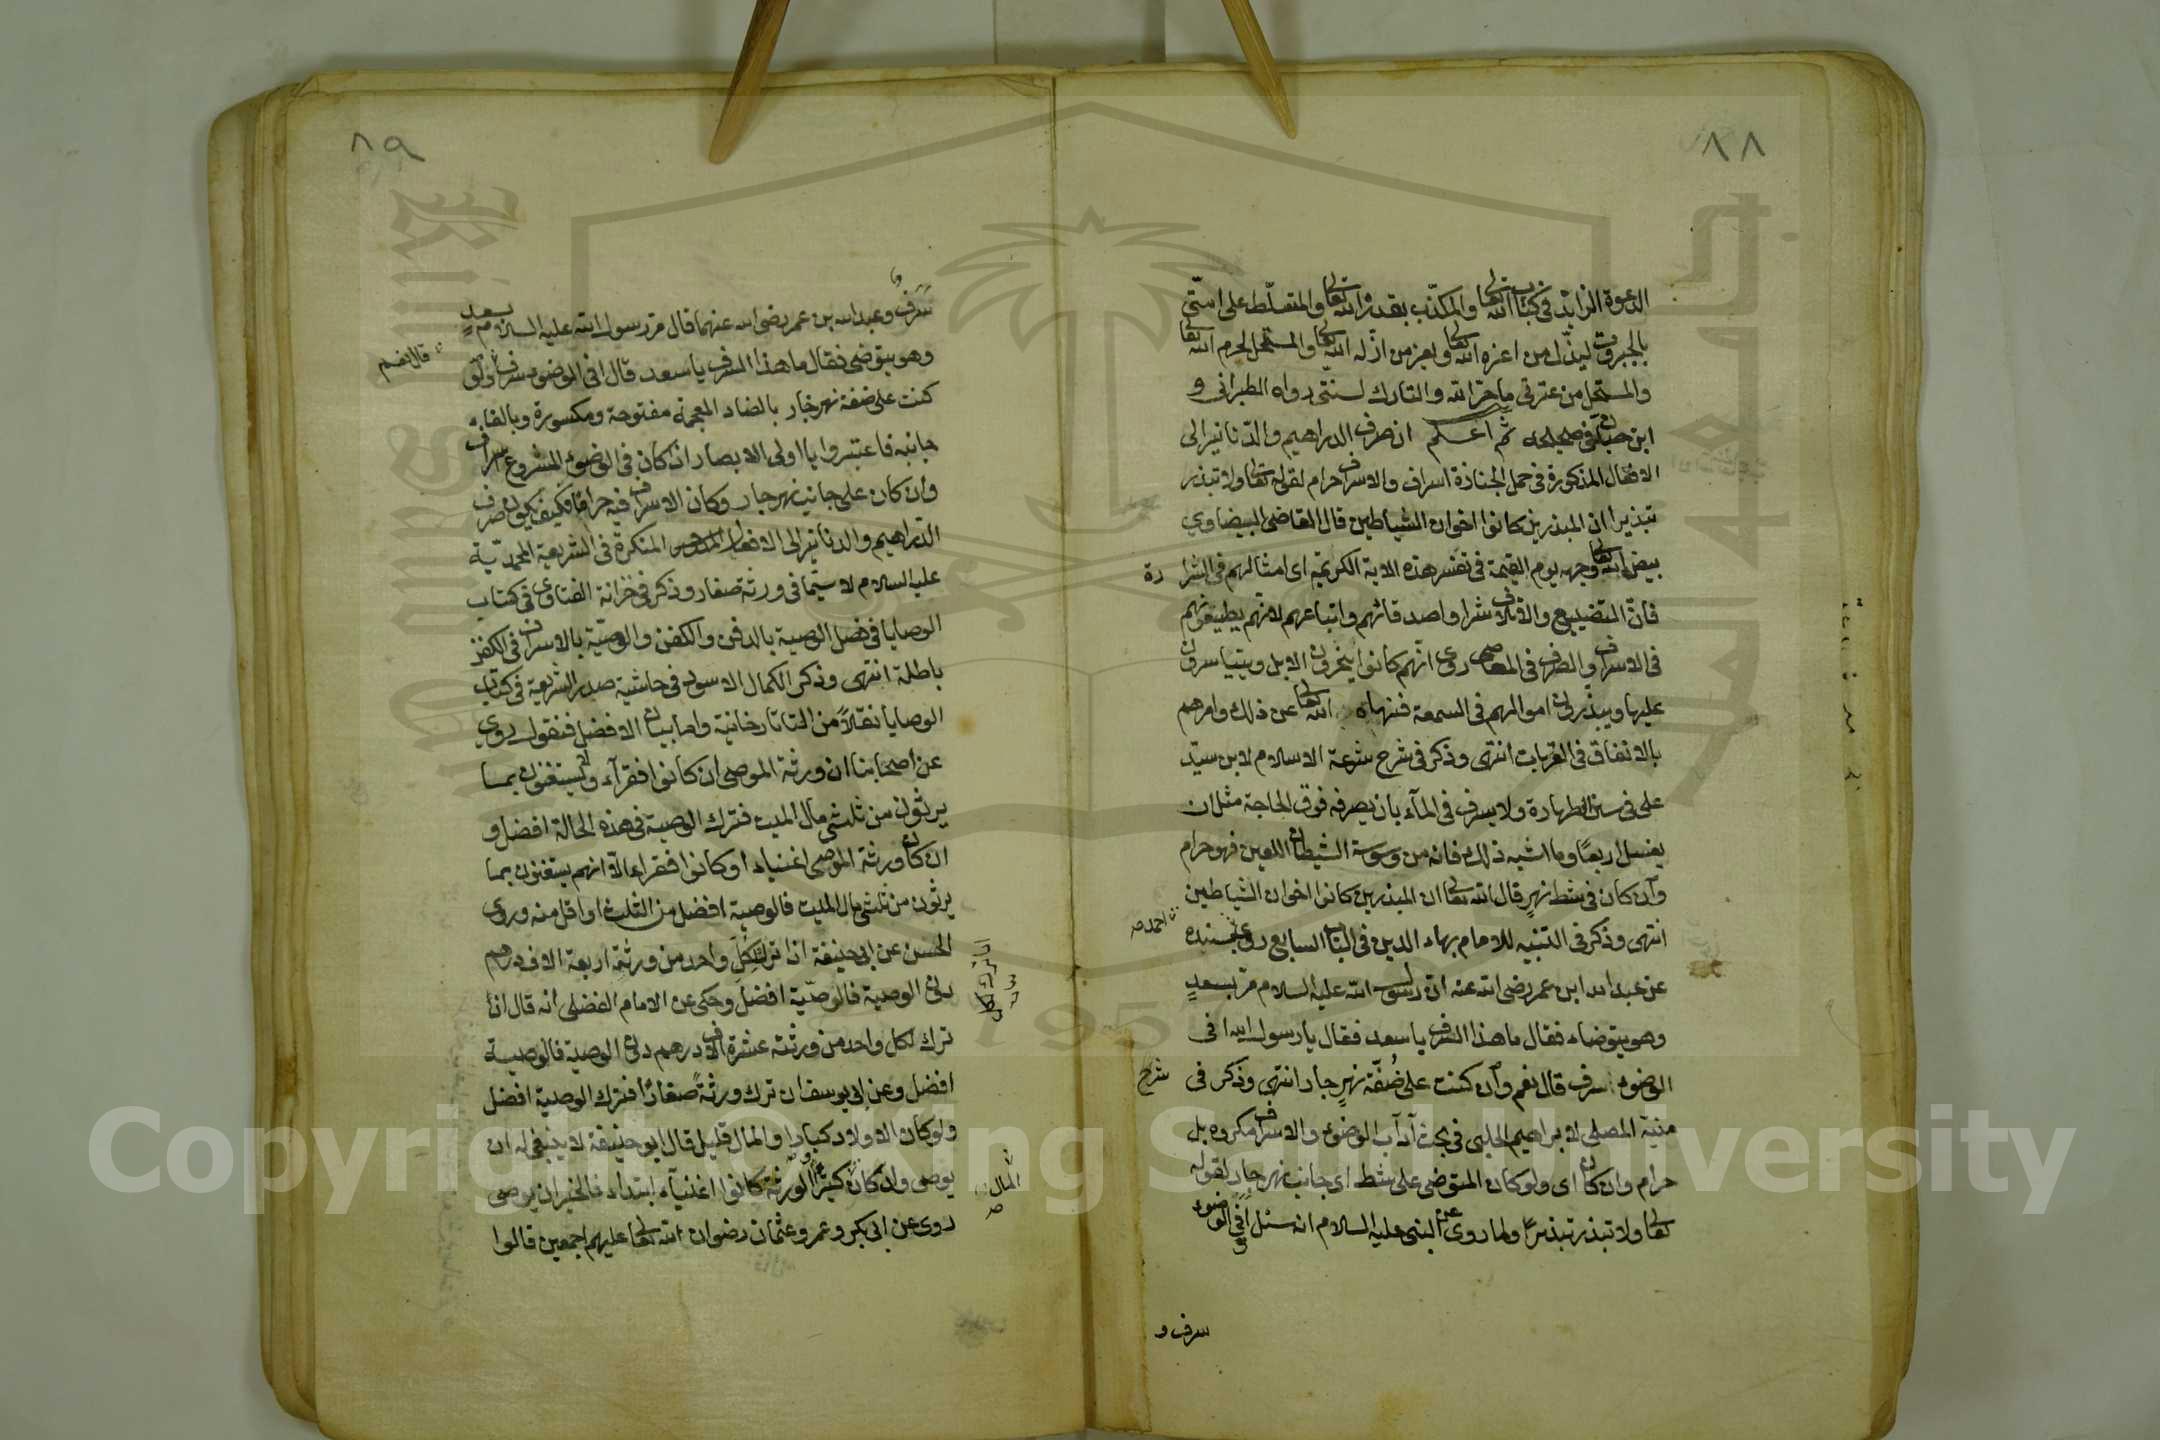 ٨٨
الدعوة الزائد في كتاب الله تعالى والمكذب بقدر الله تعالى والمتسلّط على امّتي
بالجبروت ليذل من اعزه الله تعالى ويعز من اذله الله تعالى والمستحل لحرم الله تعالى
والمستحل من عترتي ما حرّم الله والتارك لسنّتي رواه الطبراني و
ابن حبان في صحيحه ثم اعلم ان صرف الدراهيم والدنانير الى
الافعال المذكورة في حمل الجنازة اسراف والاسراف حرام لقوله تعالى ولا تبذر
تبذيرا ان المبذرين كانوا اخوان الشياطين قال القاضي البيضاوي
بيض الله تعالى وجهه يوم القيمة في تفسير هذه الاية الكريمة اى امثالهم في الشرا
رة
فانّ التضييع والاتلاف شرا واصدقائهم واتباعهم لانهم يطيعونهم
في الاسراف والصرف في المعاصى روى انهم كانوا ينحرون الابل ويتياسرون
عليها ويبذرون اموالهم في السمعة فنهاه الله تعالى عن ذلك وامرهم
بالانفاق في القربات انتهى وذكر في شرح شرعة الاسلام لابن سيّد
على في سنن الطهارة ولا يسرف في المآء بان يصرفه فوق الحاجة مثل ان
يغسل اربعًا وما اشبه ذلك فانه من وسوسة الشيطان اللعين فهو حرام
وان كان في شط نهر قال الله تعالى ان المبذرين كانوا اخوان الشياطين
انتهى وذكر في التنبيه للامام بهاء الدين في الباب السابع روى بسنده
احمد صح
عن عبد الله ابن عمر رضى الله عنه ان رسول الله عليه السلام مر بسعدٍ
وهو يتوضاء فقال ما هذا السرف يا سعد فقال يا رسول الله افى
الوضوء سرف قال نعم وان كنت على ضفّة نهرٍ جار انتهى وذكر في
شرح
منية المصلى لابراهيم الحلبى في بحث آداب الوضوء والاسراف مكروه بل
حرام وان كان اى ولو كان المتوضى على شط اى جانب نهر جار لقوله
تعالى ولا تبذر تبذيرًا ولما روى عن النبى عليه السلام انه سئل افي الوضوء
سرف و
٨٩
سَرَف و عبد الله بن عمر رضى الله عنهما قال مر رسول الله عليه السلام بسعدٍ
وهو يتوضى فقال ما هذا السرف يا سعد قال افى الوضوء سرف ولو
قال نعم
كنت على ضفة نهر جار بالضاد المعجمة مفتوحة ومكسورة وبالفاء
جانبه فاعتبروا يا اولى الابصار اذ كان في الوضوء المشروع اسراف
وان كان على جانب نهر جار وكان الاسراف فيه حرامًا فكيف يكون صرف
الدراهيم والدنانير الى الافعال المنكرة في الشريعة المحمدية
عليه السلام لا سيما في ورثة صغار وذكر في خزانة الفتاوى في كتاب
الوصايا في فصل الوصية بالدفن والكفن والوصيّة بالاسراف في الكفن
باطلة انتهى وذكر الكمال الاسود في حاشية صدر الشريعة في كتاب
الوصايا نقلاً من التاتارخانية واما بيان الافضل فنقول روى
عن اصحابنا ان ورثة الموصى ان كانوا فقرآء ولا يستغنون بما
يرثون من ثلثى مال الميت فترك الوصية في هذه الحالة افضل و
ان كان ورثة الموصى اغنياء او كانوا فقراء الّا انهم يستغنون بما
يرثون من ثلثى مال الميت فالوصية افضل من الثلث او اقل منه وروى
الحسن عن ابى حنيفة اذا ترك لكل واحد من ورثته اربعة الاف درهم
دون الوصية فالوصيّة افضل وحكى عن الامام الفضلى انه قال اذا
ترك لكل واحد من ورثته عشرة الاف درهم دون الوصية فالوصية
افضل وعن ابى يوسف ان ترك ورثةً صغارًا فترك الوصية افضل
ولو كان الاولاد كبارا والمال قليل قال ابو حنيفة لا ينبغى له ان
يوصى وان كان كثيرًا والورثة كانوا اغنيآء ابتداء فالخير ان يوصى
المال
صح
روى عن ابى بكر وعمر وعثمان رضوان الله تعالى عليهم اجمعين قالوا
Copyright © King Saud University
1957